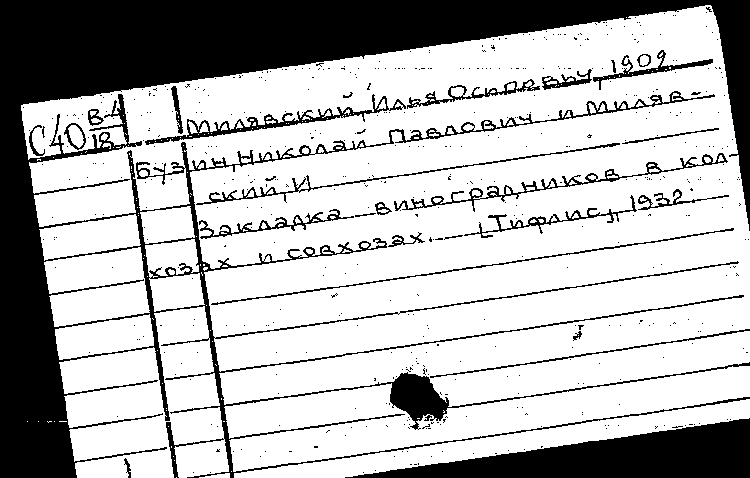 С40 В-4/18 Милявский, Илья Осипович, 1902
Бузин, Николай Павлович и Миляв-
ский, И
Закладка виноградников в кол-
хозах и совхозах. [Тифлис], 1932.